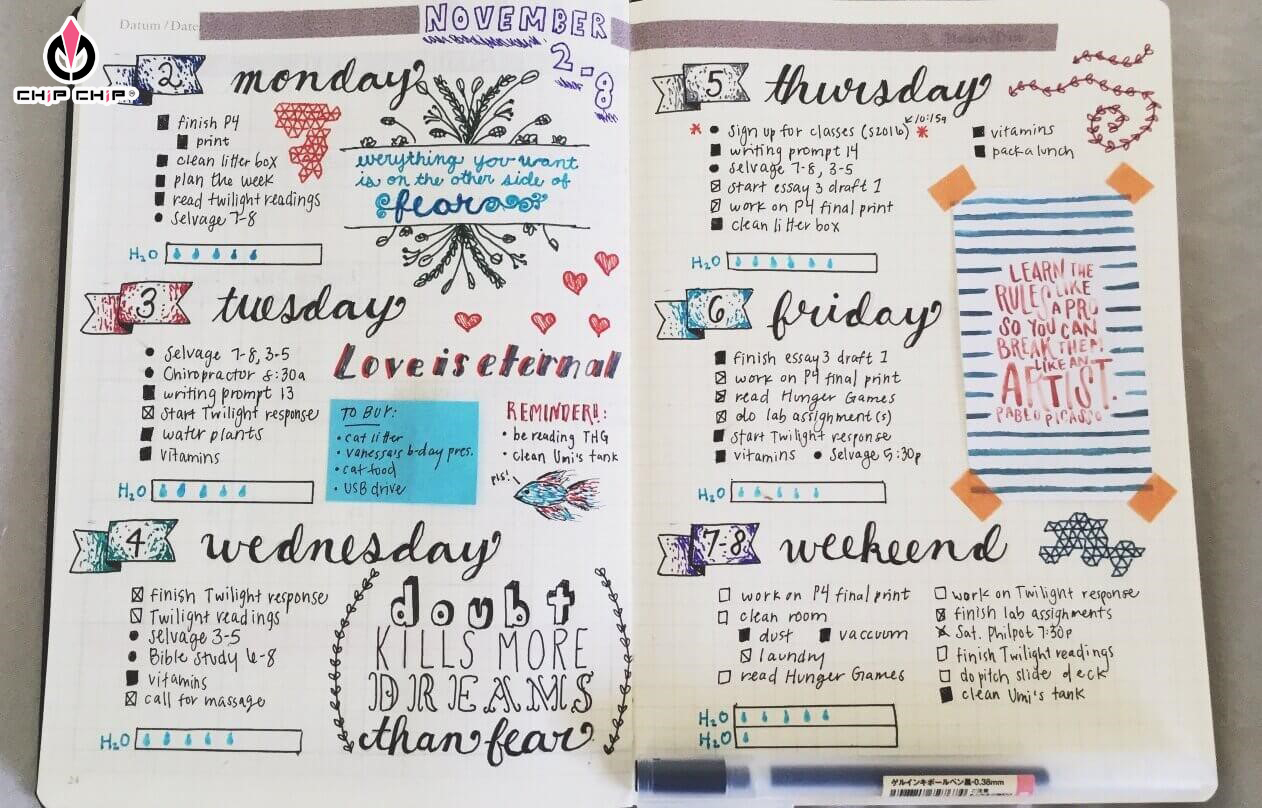 Datum / Date
CHIP CHIP®
NOVEMBER
2-8
2 monday
finish P4
print
clean litter box
plan the week
read twilight readings
selvage 7-8
H2O
everything you want
is on the other side of
fear
3 tuesday
selvage 7-8, 3-5
Chiropractor 8:30a
writing prompt 13
start Twilight response
water plants
vitamins
H2O
Love is eternal
TO BUY:
• cat litter
• vanessa's b-day pres.
• cat food
• USB drive
REMINDER!!:
• be reading THG
• clean Umi's tank
pls!
4 wednesday
finish Twilight response
Twilight readings
selvage 3-5
Bible study 6-8
vitamins
call for massage
H2O
doubt
KILLS MORE
DREAMS
than fear
24
Datum / Date
5 thursday
sign up for classes (s2016)
10:15a
writing prompt 14
selvage 7-8, 3-5
start essay 3 draft 1
work on P4 final print
clean litter box
vitamins
pack a lunch
H2O
LEARN THE
RULES LIKE
A PRO
SO YOU CAN
BREAK THEM
LIKE AN
ARTIST.
PABLO PICASSO
6 friday
finish essay 3 draft 1
work on P4 final print
read Hunger Games
do lab assignment(s)
start Twilight response
vitamins • Selvage 5:30p
H2O
7-8 weekeend
work on P4 final print
clean room
dust vaccuum
laundry
read Hunger Games
work on Twilight response
finish lab assignments
Sat. Philpot 7:30p
finish Twilight readings
do pitch slide deck
clean Umi's tank
H2O
H2O
ゲルインキボールペン黒・0.38mm